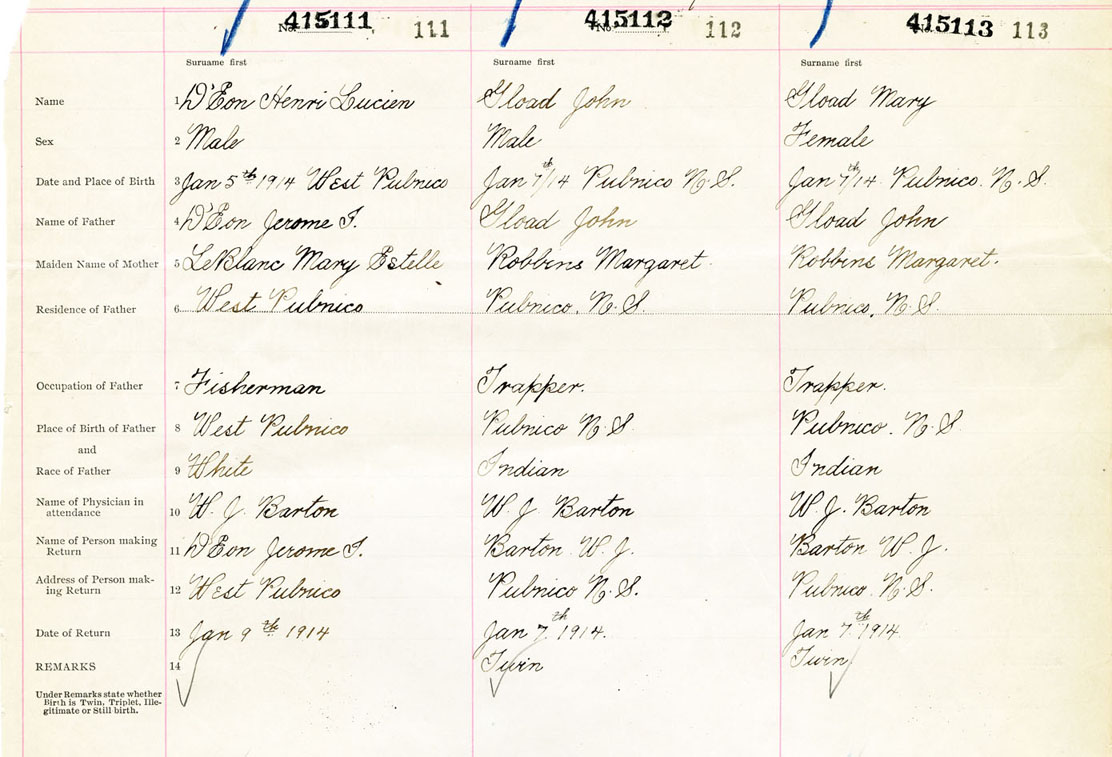 No. 415111 111 No. 415112 112 No. 415113 113
Surname first Surname first Surname first
Name 1 D'Eon Henri Lucien Gload John Gload Mary
Sex 2 Male Male Female
Date and Place of Birth 3 Jan 5th 1914 West Pubnico Jan 7th/14 Pubnico N.S. Jan 7th/14 Pubnico. N.S.
Name of Father 4 D'Eon Jerome F. Gload John Gload John
Maiden Name of Mother 5 LeBlanc Mary Estelle Robbins Margaret. Robbins Margaret.
Residence of Father 6 West Pubnico Pubnico. N.S. Pubnico. N.S.
Occupation of Father 7 Fisherman Trapper. Trapper.
Place of Birth of Father 8 West Pubnico Pubnico N.S. Pubnico. N.S
and
Race of Father 9 White Indian Indian
Name of Physician in
attendance 10 W. J. Barton W. J. Barton W. J. Barton
Name of Person making
Return 11 D'Eon Jerome F. Barton W. J. Barton W. J.
Address of Person mak-
ing Return 12 West Pubnico Pubnico N.S. Pubnico. N.S.
Date of Return 13 Jan 9th 1914 Jan 7th 1914. Jan 7th 1914.
REMARKS 14 Twin Twin
Under Remarks state whether
Birth is Twin, Triplet, Ille-
gitimate or Still birth.